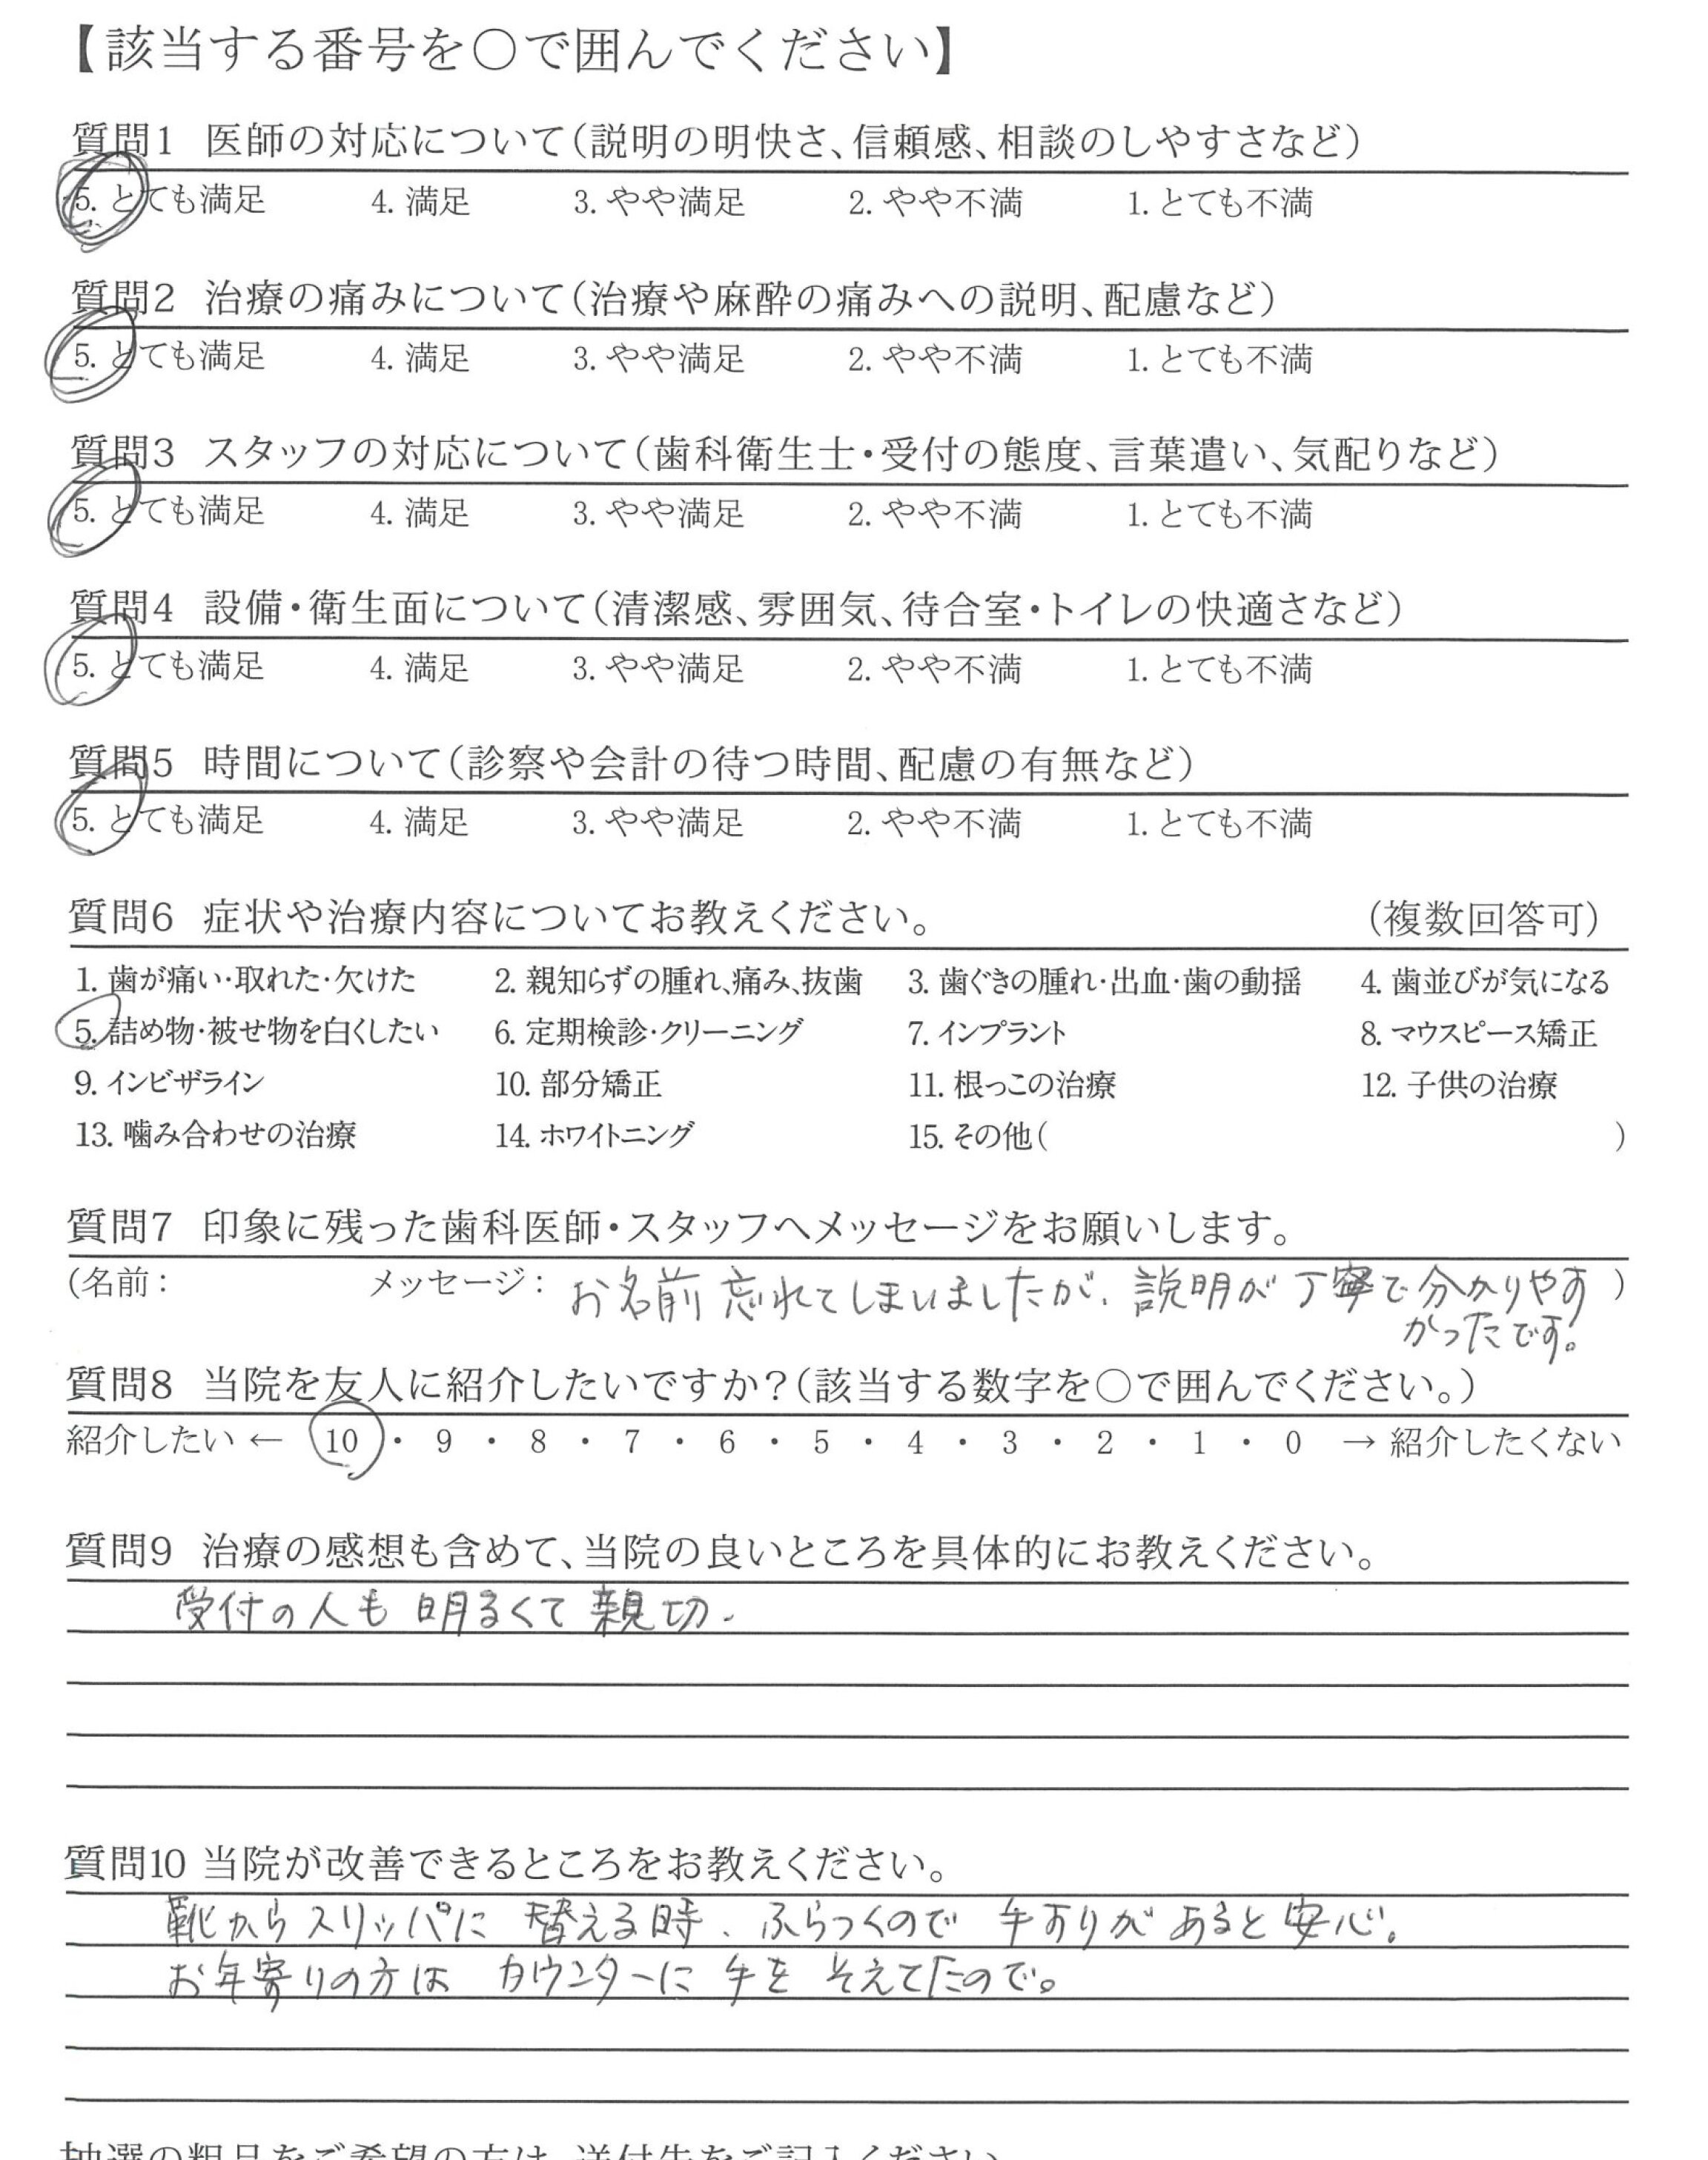 【該当する番号を〇で囲んでください】
質問1 医師の対応について(説明の明快さ、信頼感、相談のしやすさなど)
5. とても満足 4. 満足 3. やや満足 2. やや不満 1. とても不満
質問2 治療の痛みについて(治療や麻酔の痛みへの説明、配慮など)
5. とても満足 4. 満足 3. やや満足 2. やや不満 1. とても不満
質問3 スタッフの対応について(歯科衛生士・受付の態度、言葉遣い、気配りなど)
5. とても満足 4. 満足 3. やや満足 2. やや不満 1. とても不満
質問4 設備・衛生面について(清潔感、雰囲気、待合室・トイレの快適さなど)
5. とても満足 4. 満足 3. やや満足 2. やや不満 1. とても不満
質問5 時間について(診察や会計の待つ時間、配慮の有無など)
5. とても満足 4. 満足 3. やや満足 2. やや不満 1. とても不満
質問6 症状や治療内容についてお教えください。 (複数回答可)
1. 歯が痛い・取れた・欠けた 2. 親知らずの腫れ、痛み、抜歯 3. 歯ぐきの腫れ・出血・歯の動揺 4. 歯並びが気になる
5. 詰め物・被せ物を白くしたい 6. 定期検診・クリーニング 7. インプラント 8. マウスピース矯正
9. インビザライン 10. 部分矯正 11. 根っこの治療 12. 子供の治療
13. 噛み合わせの治療 14. ホワイトニング 15. その他( )
質問7 印象に残った歯科医師・スタッフへメッセージをお願いします。
(名前: メッセージ: お名前忘れてしまいましたが、説明が丁寧で分かりやす )
かったです。
質問8 当院を友人に紹介したいですか?(該当する数字を〇で囲んでください。)
紹介したい ← 10 ・ 9 ・ 8 ・ 7 ・ 6 ・ 5 ・ 4 ・ 3 ・ 2 ・ 1 ・ 0 → 紹介したくない
質問9 治療の感想も含めて、当院の良いところを具体的にお教えください。
受付の人も明るくて親切.
質問10 当院が改善できるところをお教えください。
靴からスリッパに替える時、ふらつくので手すりがあると安心。
お年寄りの方はカウンターに手をそえてたので。
抽選の粗品をご希望の方は、送付先をご記入ください